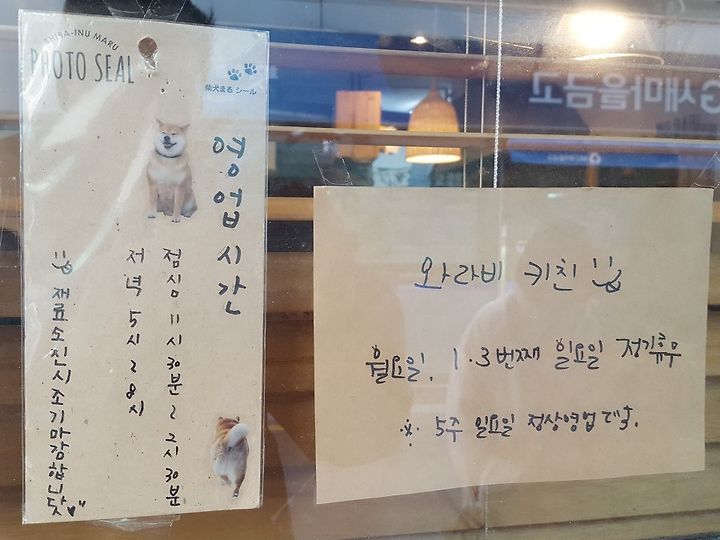 SHIBA-INU MARU
PHOTO SEAL
柴犬まる シール
영업시간
점심 11시30분~2시30분
저녁 5시~8시
재료소진시조기마감합니닷
새마을금고
와라비 키친
월요일, 1·3번째 일요일 정기휴무
※ 5주 일요일 정상영업です.